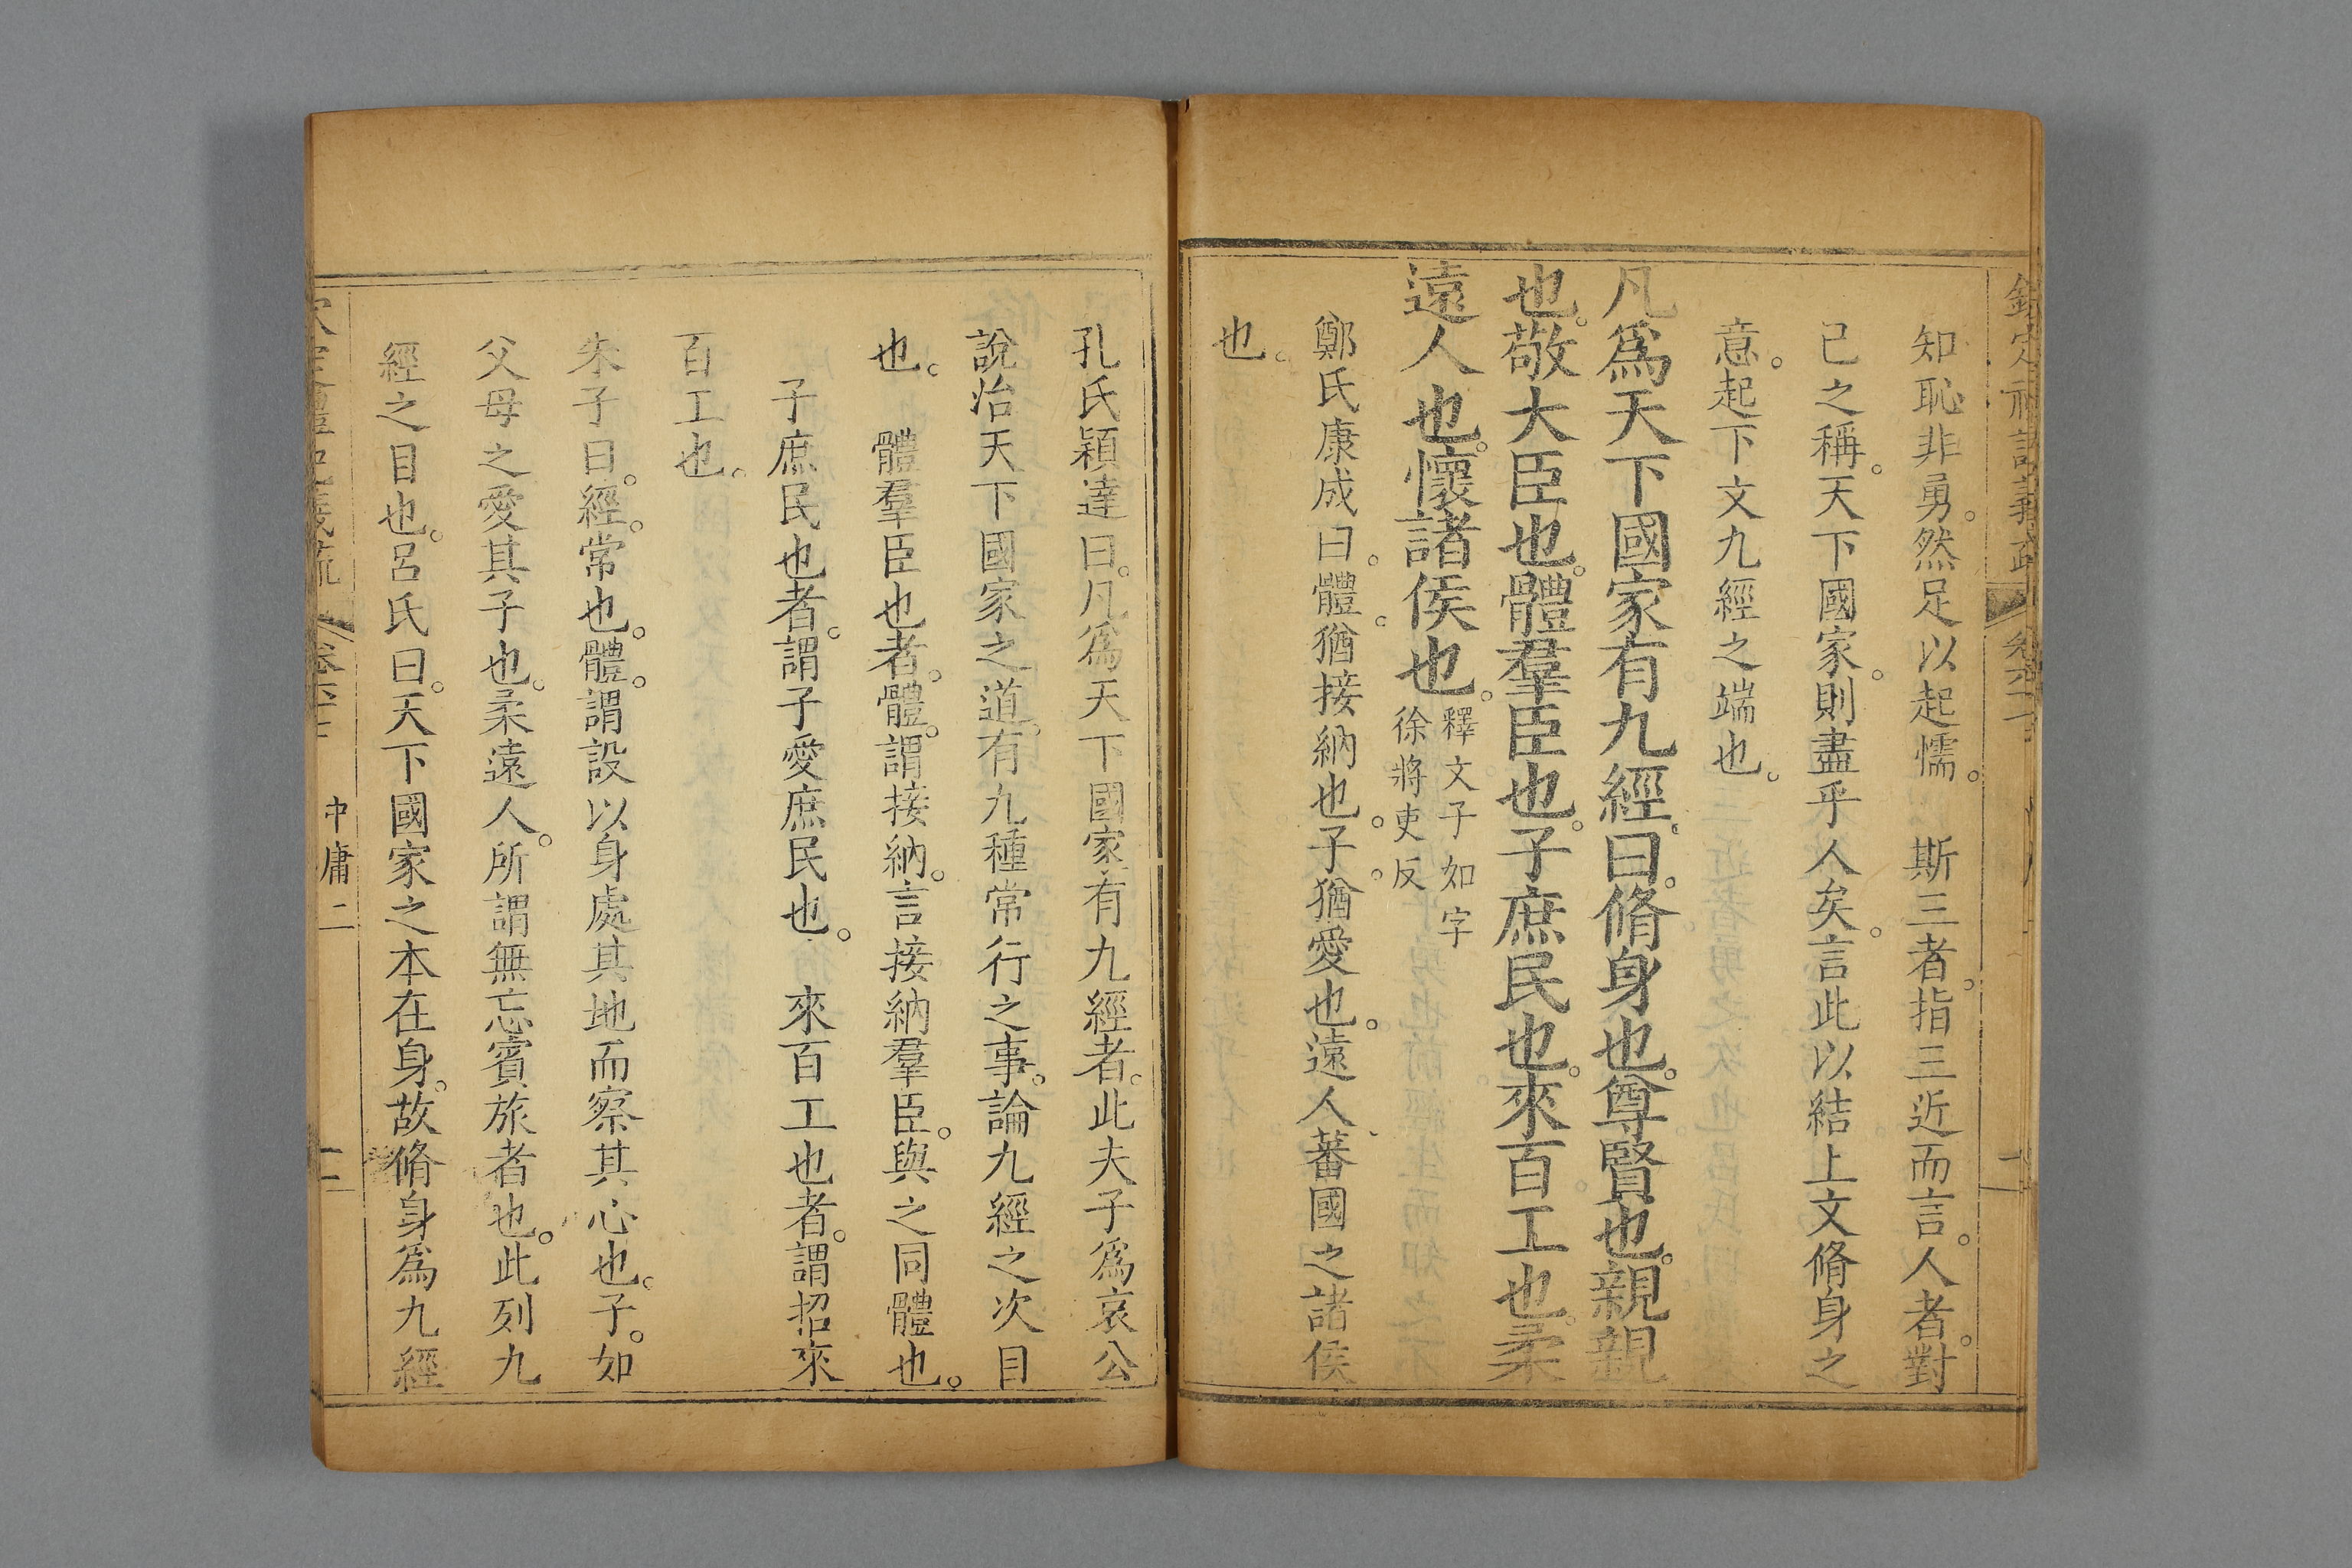 知恥非勇。然足以起懦。 斯三者。指三近而言。人者。對
己之稱。天下國家。則盡乎人矣。言此以結上文脩身之
意。起下文九經之端也。
凡爲天下國家有九經。曰。脩身也。尊賢也。親親
也。敬大臣也。體羣臣也。子庶民也。來百工也。柔
遠人也。懷諸侯也。
釋文子如字
徐將吏反
鄭氏康成曰。體。猶接納也。子。猶愛也。遠人、蕃國之諸侯
也。
孔氏穎達曰。凡爲天下國家有九經者。此夫子爲哀公
說治天下國家之道。有九種常行之事。論九經之次目
也。 體羣臣也者。體。謂接納。言接納羣臣。與之同體也。
子庶民也者。謂子愛庶民也。 來百工也者。謂招來
百工也。
朱子曰。經。常也。體。謂設以身處其地而察其心也。子。如
父母之愛其子也。柔遠人。所謂無忘賓旅者也。此列九
經之目也。呂氏曰。天下國家之本在身。故脩身爲九經
中庸二